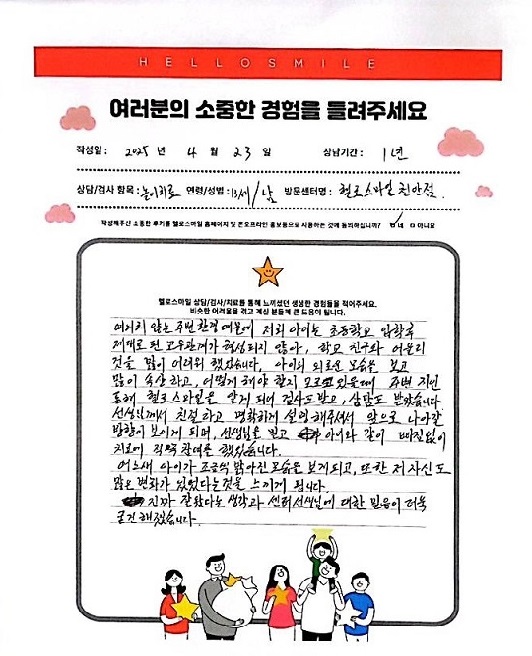 HELLOSMILE
여러분의 소중한 경험을 들려주세요
작성일 : 2025 년 4 월 23 일 상담기간 : 1년
상담/검사 항목 : 놀이치료 연령/성별 : 13세/남 방문센터명 : 헬로스마일 천안점.
작성해주신 소중한 후기를 헬로스마일 홈페이지 및 온오프라인 홍보용으로 사용하는 것에 동의하십니까? 네 아니요
헬로스마일 상담/검사/치료를 통해 느끼셨던 생생한 경험들을 적어주세요.
비슷한 어려움을 겪고 계신 분들께 큰 도움이 됩니다.
여의치 않는 주변 환경 때문에 저희 아이는 초등학교 입학후
제대로 된 교우관계가 형성되지 않아, 학교 친구와 어울리
것을 많이 어려워 했었습니다. 아이의 외로운 모습을 보고
많이 속상하고, 어떻게 해야 할지 모르고 있을때 주변 지인
통해 헬로스마일을 알게 되어 검사도 받고, 상담도 받았습니다
선생님께서 친절하고 명확하게 설명해주셔서 앞으로 나아갈
방향이 보이게 되며, 선생님을 믿고 아이와 같이 빠짐없이
치료에 적극 참여를 했었습니다.
어느새 아이가 조금씩 밝아진 모습을 보게되고, 또한 저 자신도
많은 변화가 있었다는것을 느끼게 됩니다.
진짜 잘 왔다는 생각과 센터선생님에 대한 믿음이 더욱
굳건해졌습니다.